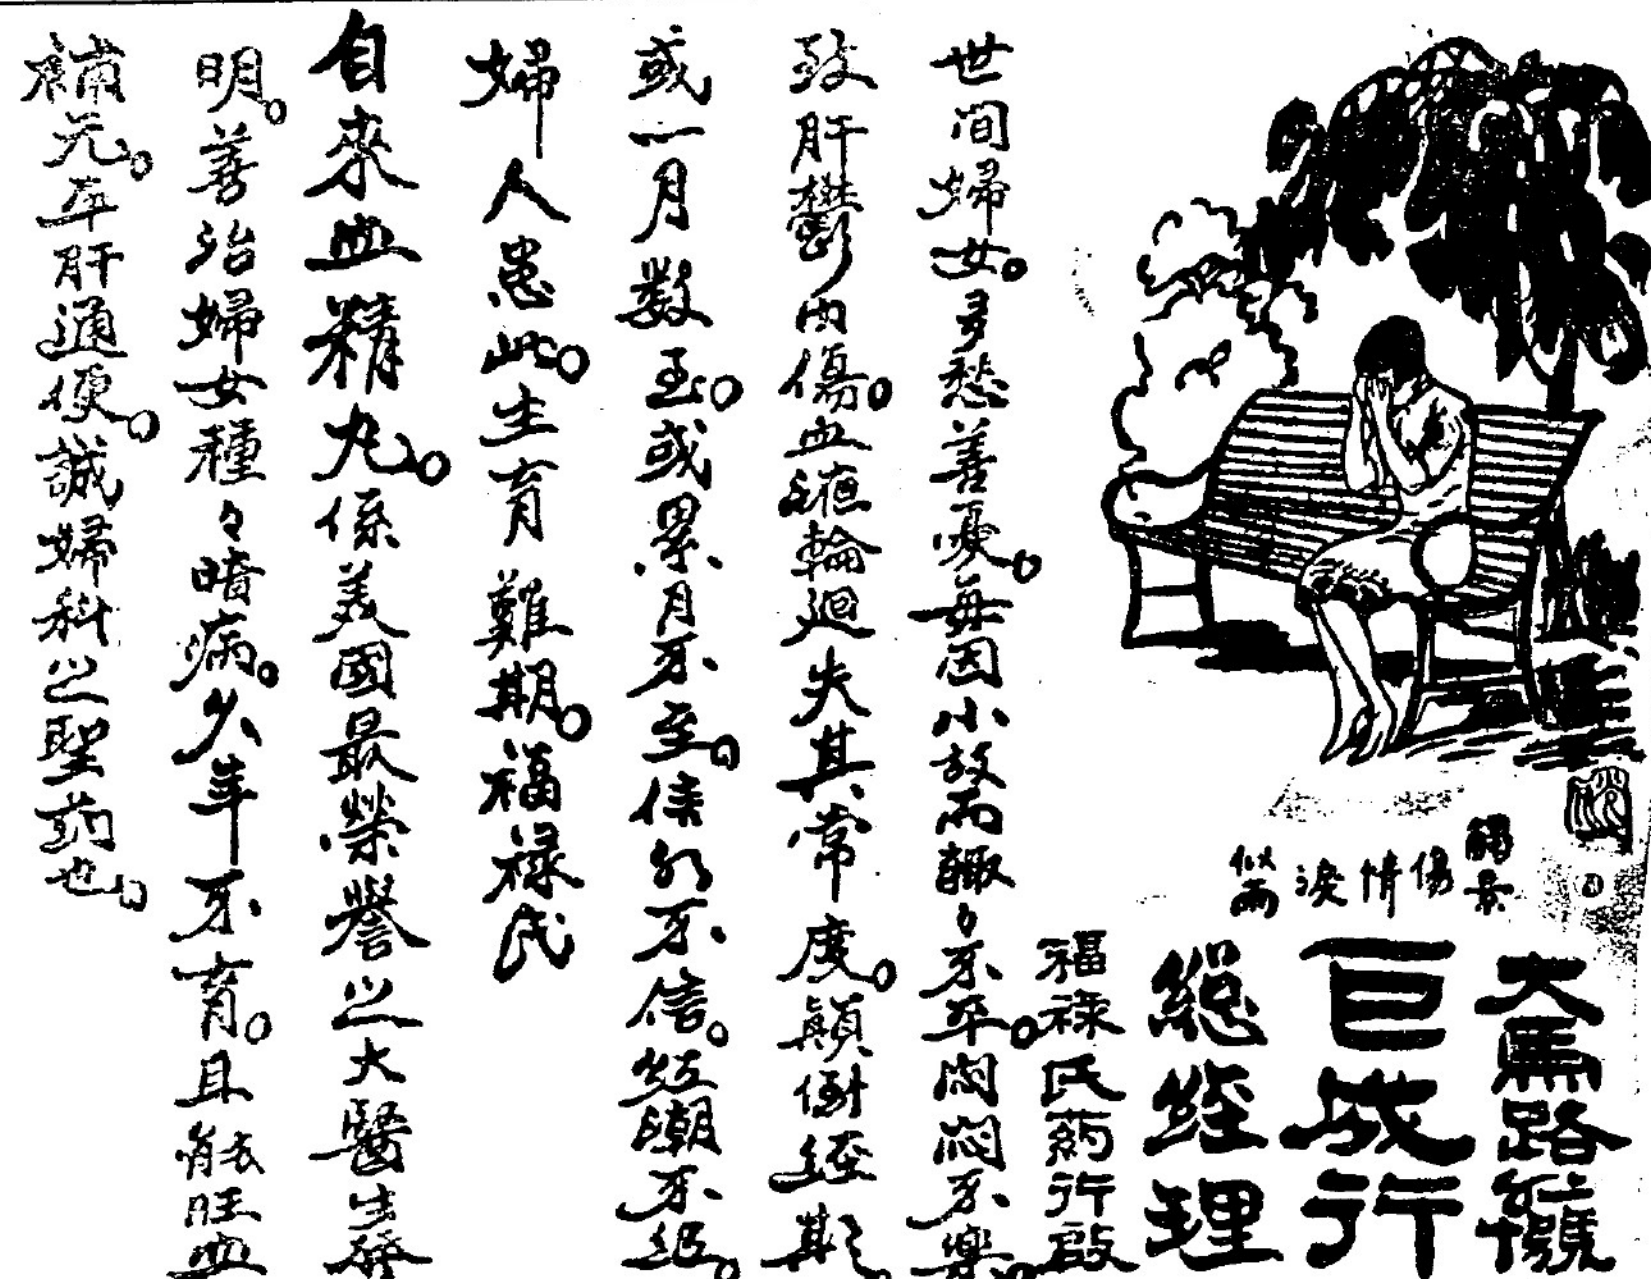 觸景
傷
情
淚
似雨
大馬路
巨成行
總經理
福祿氏药行啟
世間婦女。多愁善憂。每因小故而輙々不平。悶悶不樂。
致肝鬱內傷。血液輪廻失其常度。顛倒經期。
或一月數至。或累月不至。信水不信。紅潮不紅。
婦人患此。生育難期。福祿氏
自來血精丸。係美國最榮譽之大醫生發
明。善治婦女種々暗病。久年不育。且能旺血
補元。平肝通便。誠婦科之聖药也。